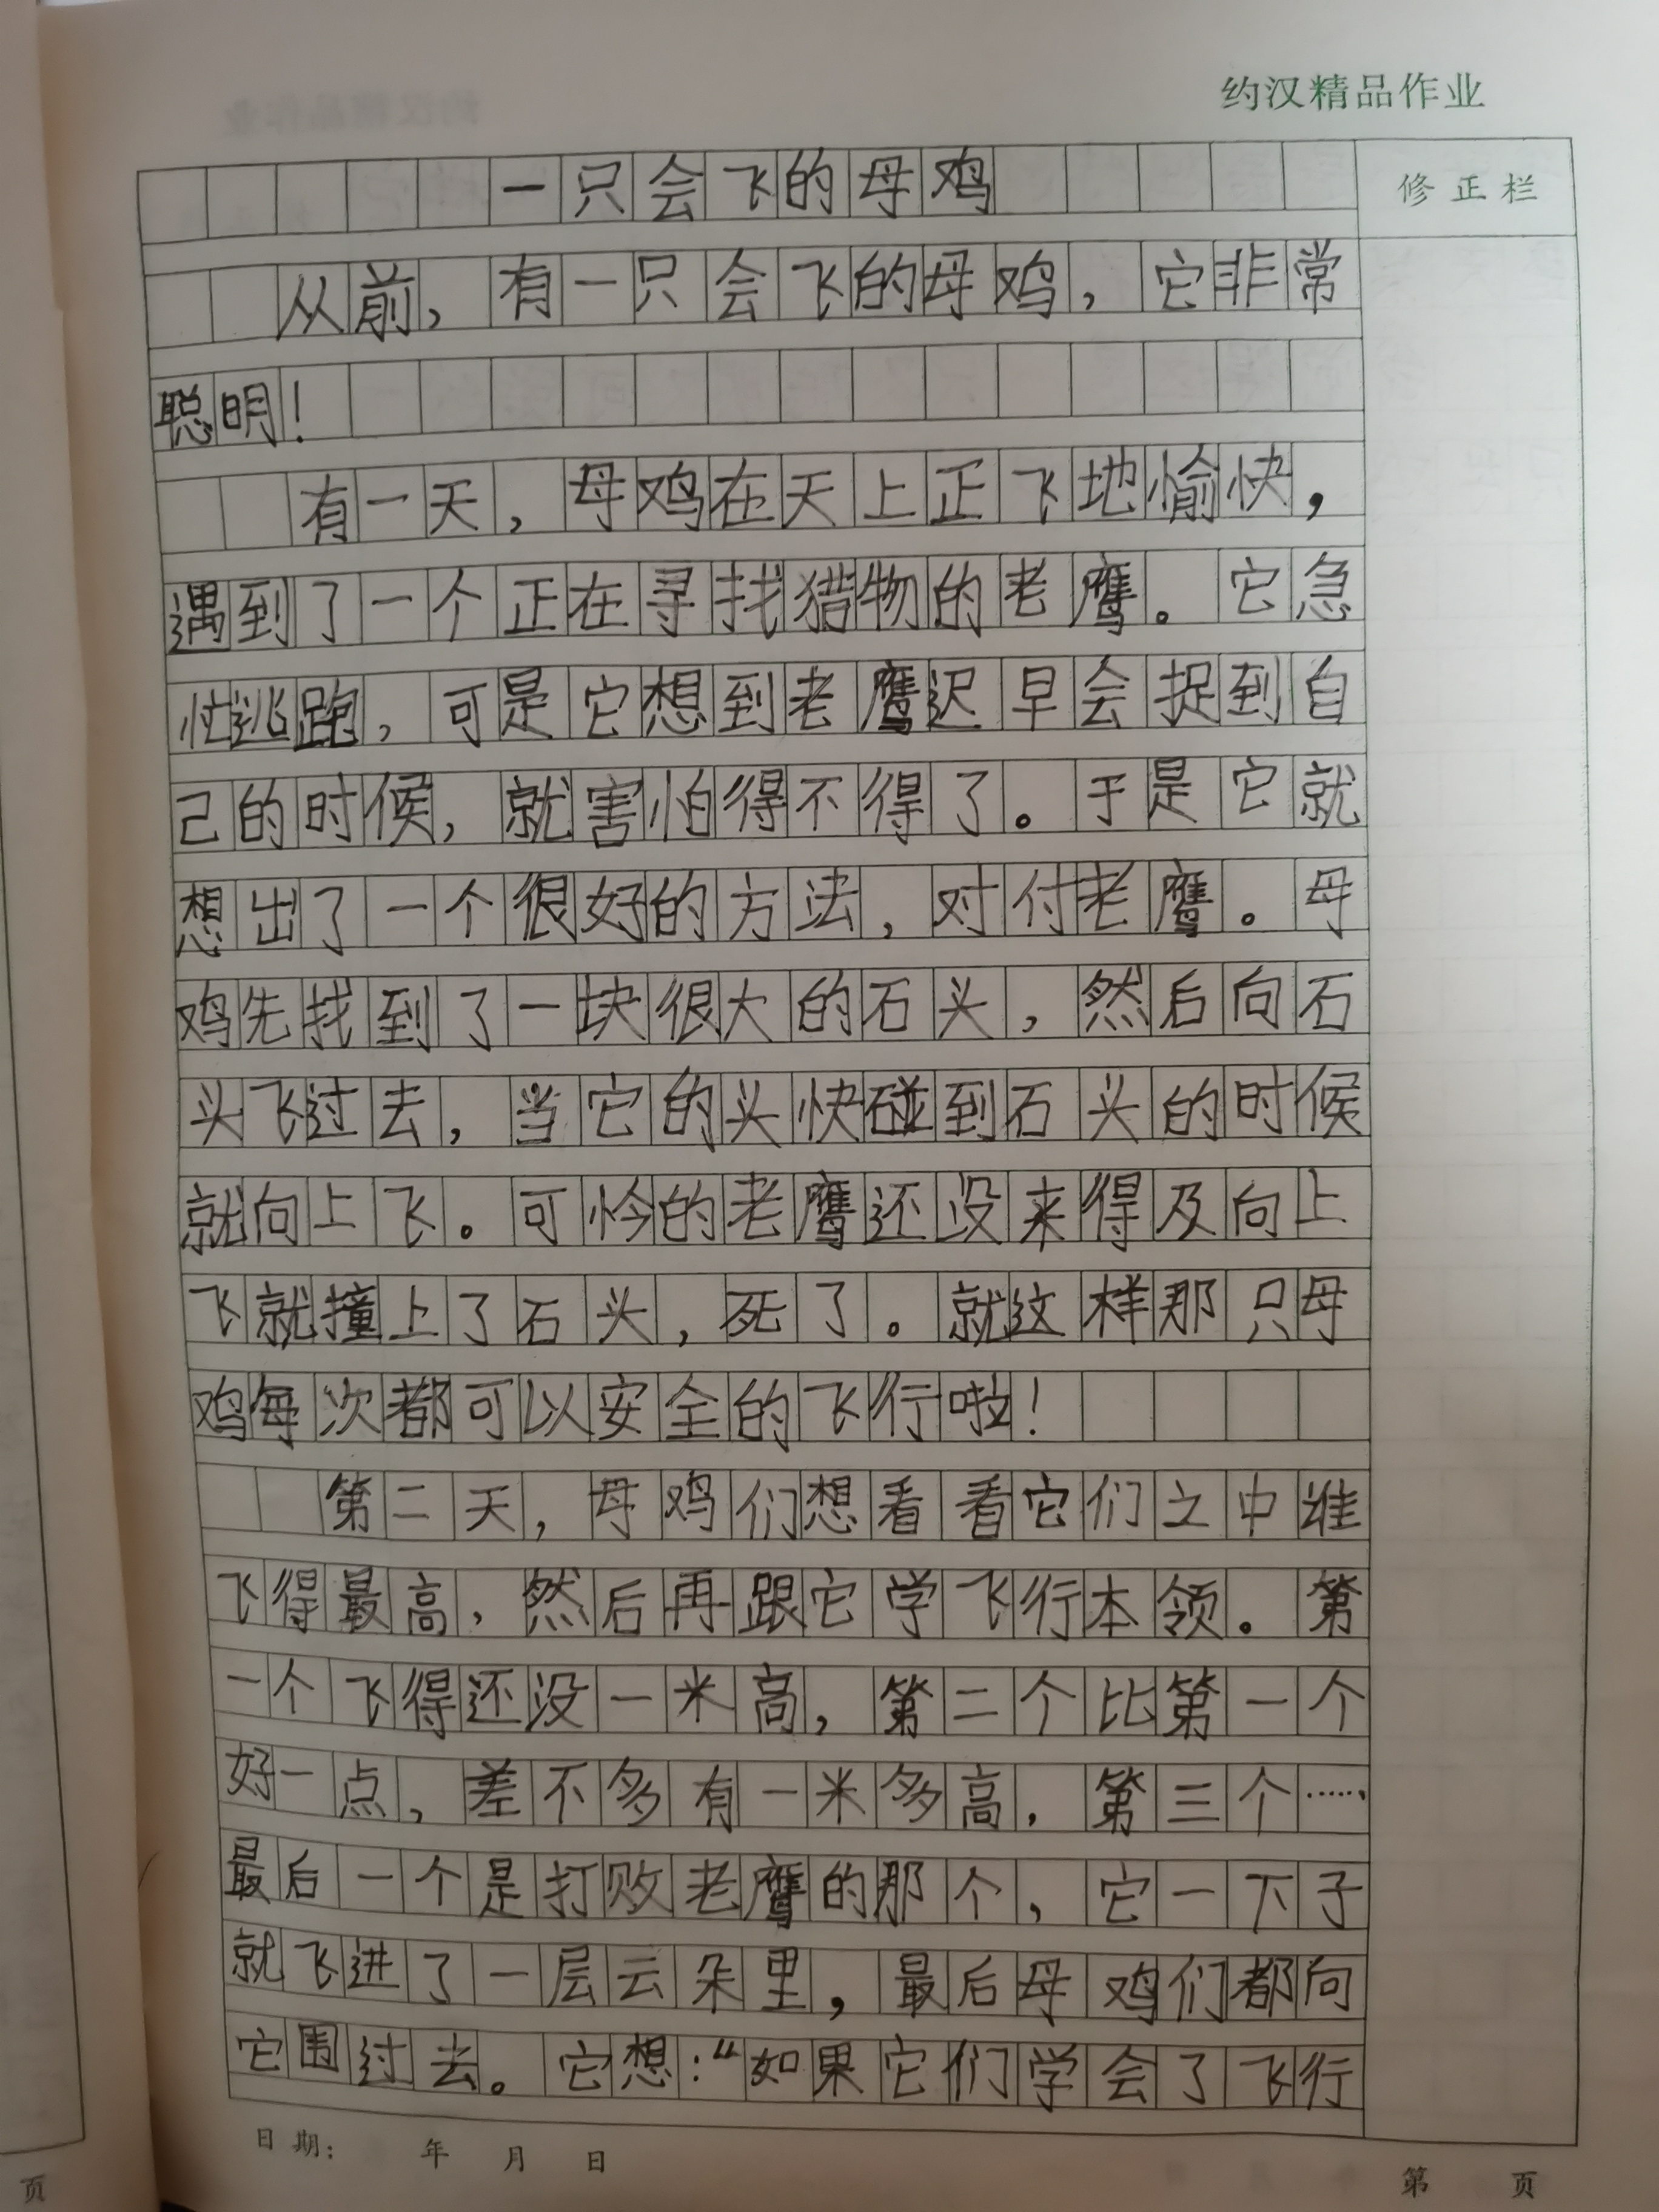 约汉精品作业
一只会飞的母鸡
修正栏
从前，有一只会飞的母鸡，它非常
聪明！
有一天，母鸡在天上正飞地愉快，
遇到了一个正在寻找猎物的老鹰。它急
忙逃跑，可是它想到老鹰迟早会捉到自
己的时候，就害怕得不得了。于是它就
想出了一个很好的方法，对付老鹰。母
鸡先找到了一块很大的石头，然后向石
头飞过去，当它的头快碰到石头的时候
就向上飞。可怜的老鹰还没来得及向上
飞就撞上了石头，死了。就这样那只母
鸡每次都可以安全的飞行啦！
第二天，母鸡们想看看它们之中谁
飞得最高，然后再跟它学飞行本领。第
一个飞得还没一米高，第二个比第一个
好一点，差不多有一米多高，第三个……
最后一个是打败老鹰的那个，它一下子
就飞进了一层云朵里，最后母鸡们都向
它围过去。它想：“如果它们学会了飞行
日期： 年 月 日
第 页
页